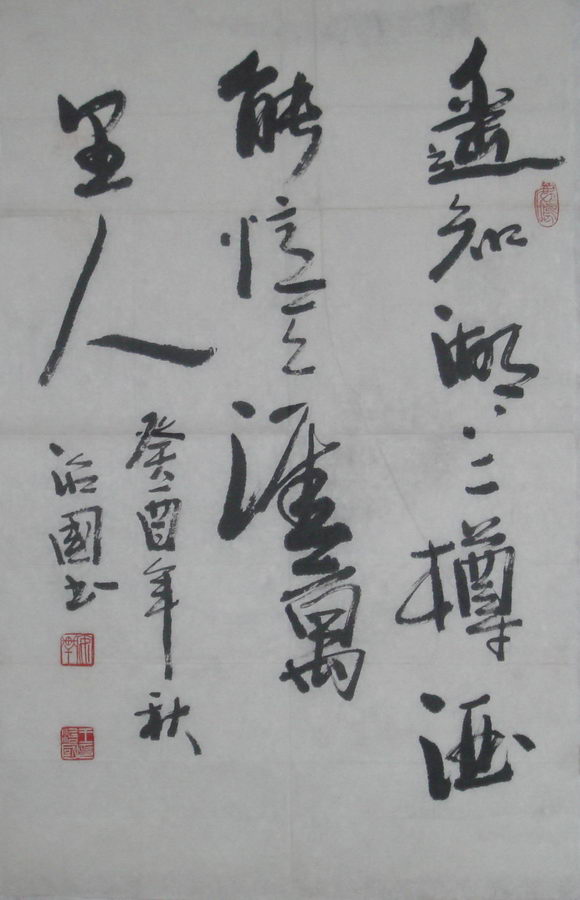 遙知湖上一樽酒
能憶天涯萬
里人
癸酉年秋
治國书